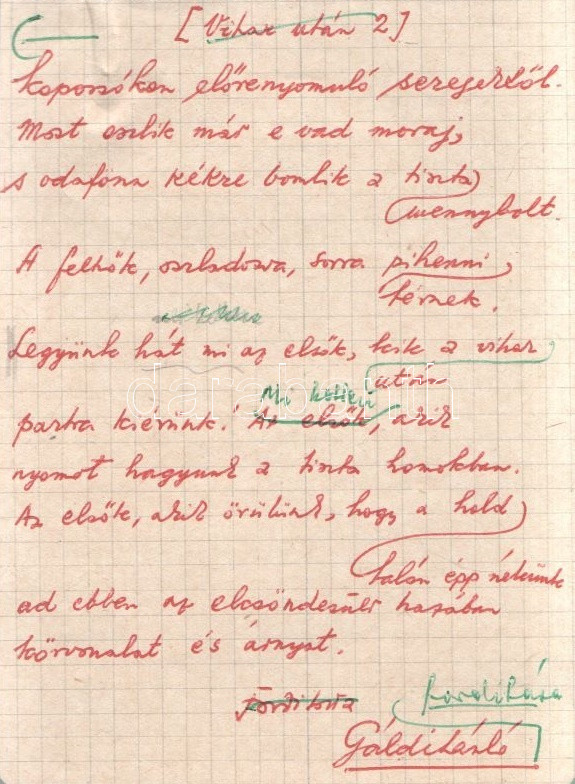 [Vihar után 2]
koporsókon előrenyomuló seregektől.
Most oszlik már e vad moraj,
s odafönn kékre bomlik a tiszta
mennybolt.
A felhők, oszladozva, sorra pihenni
térnek.
Legyünk hát mi az elsők, kik a vihar
után
partra kiérünk! Az elsők, akik
Mi ketten
nyomot hagyunk a tiszta homokban.
Az elsők, akik örülünk, hogy a hold
talán épp nekünk
ad ebben az elcsöndesült házában
körvonalat és árnyat.
Fordította
fordítása
Gáldi László
darabanth